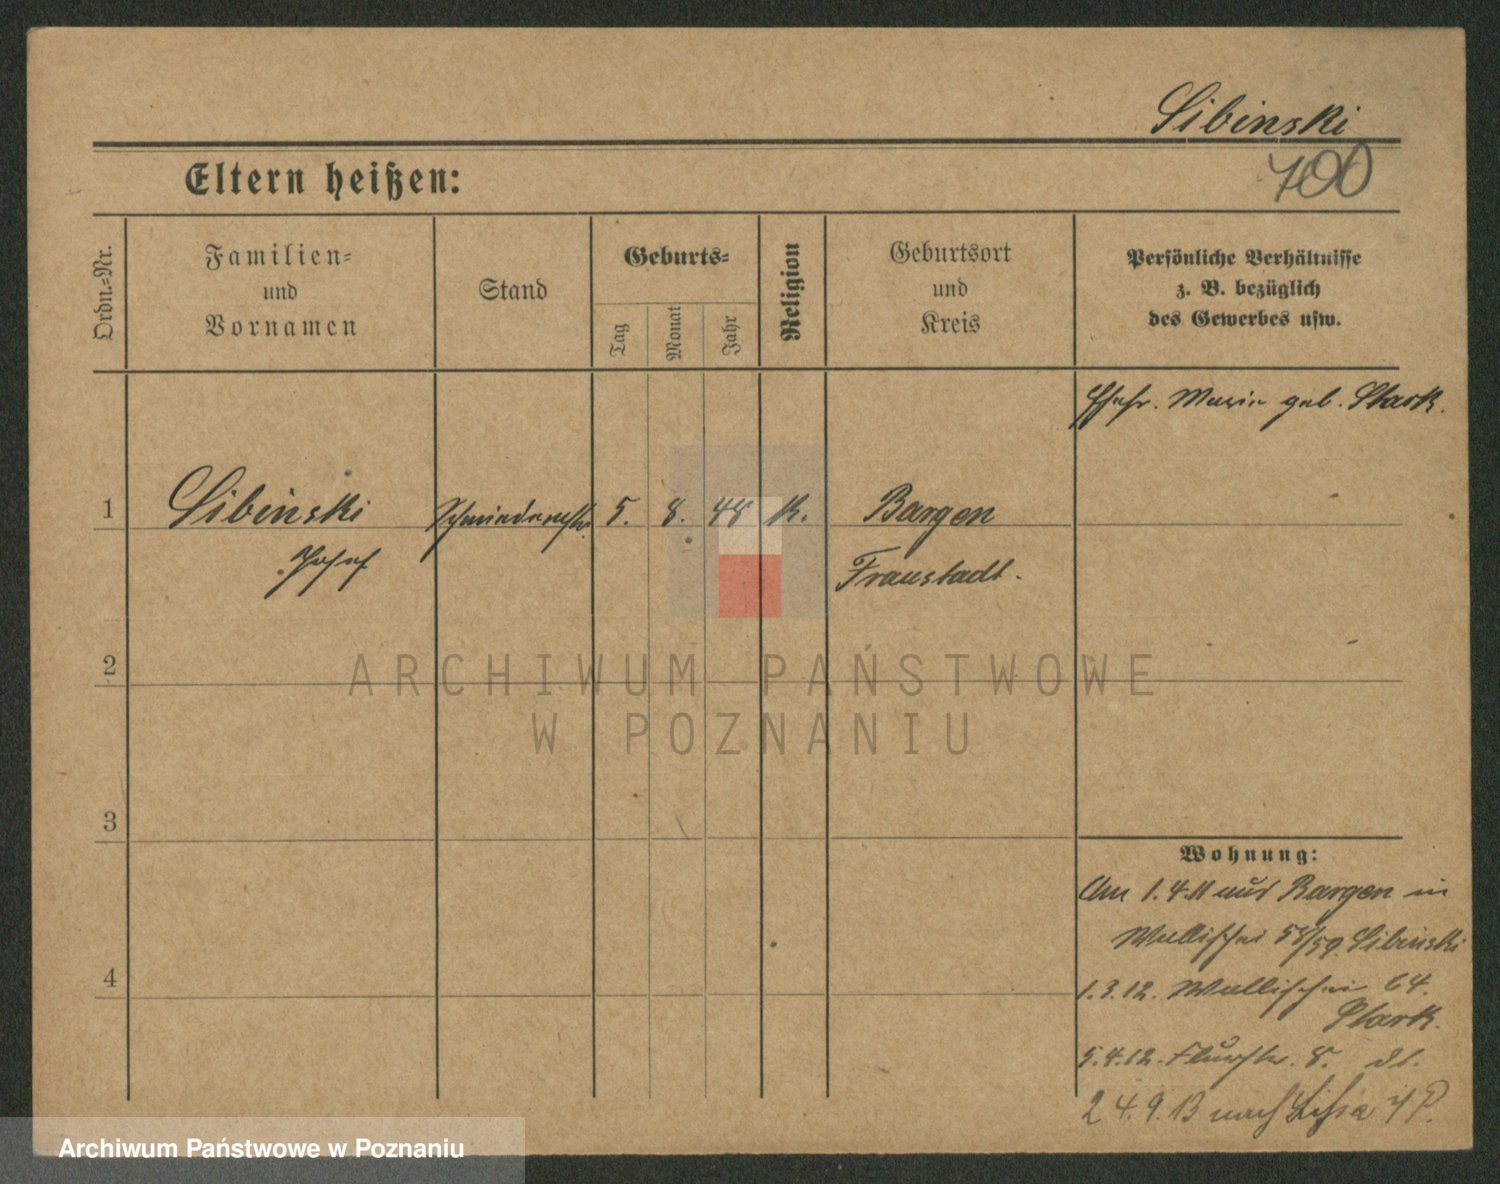 Sibinski
700
Eltern heißen:
Ordn.-Nr.
Familien-
und
Vornamen
Stand
Geburts-
Tag
Monat
Jahr
Religion
Geburtsort
und
Kreis
Persönliche Verhältnisse
z. B. bezüglich
des Gewerbes usw.
Ehefr. Marie geb. Stark.
1
Sibinski
Josef
Schmiedemstr.
5. 8. 48 K.
Bargen
Fraustadt.
2
3
4
Wohnung:
Am 1.4.11 aus Bargen in
Wallischei 58/59. Sibinski
1.3.12. Wallischei 64.
Stark.
5.4.12. Flurstr. 8. dt.
24.9.13 nach Lissa i/P.
ARCHIWUM PAŃSTWOWE
W POZNANIU
Archiwum Państwowe w Poznaniu